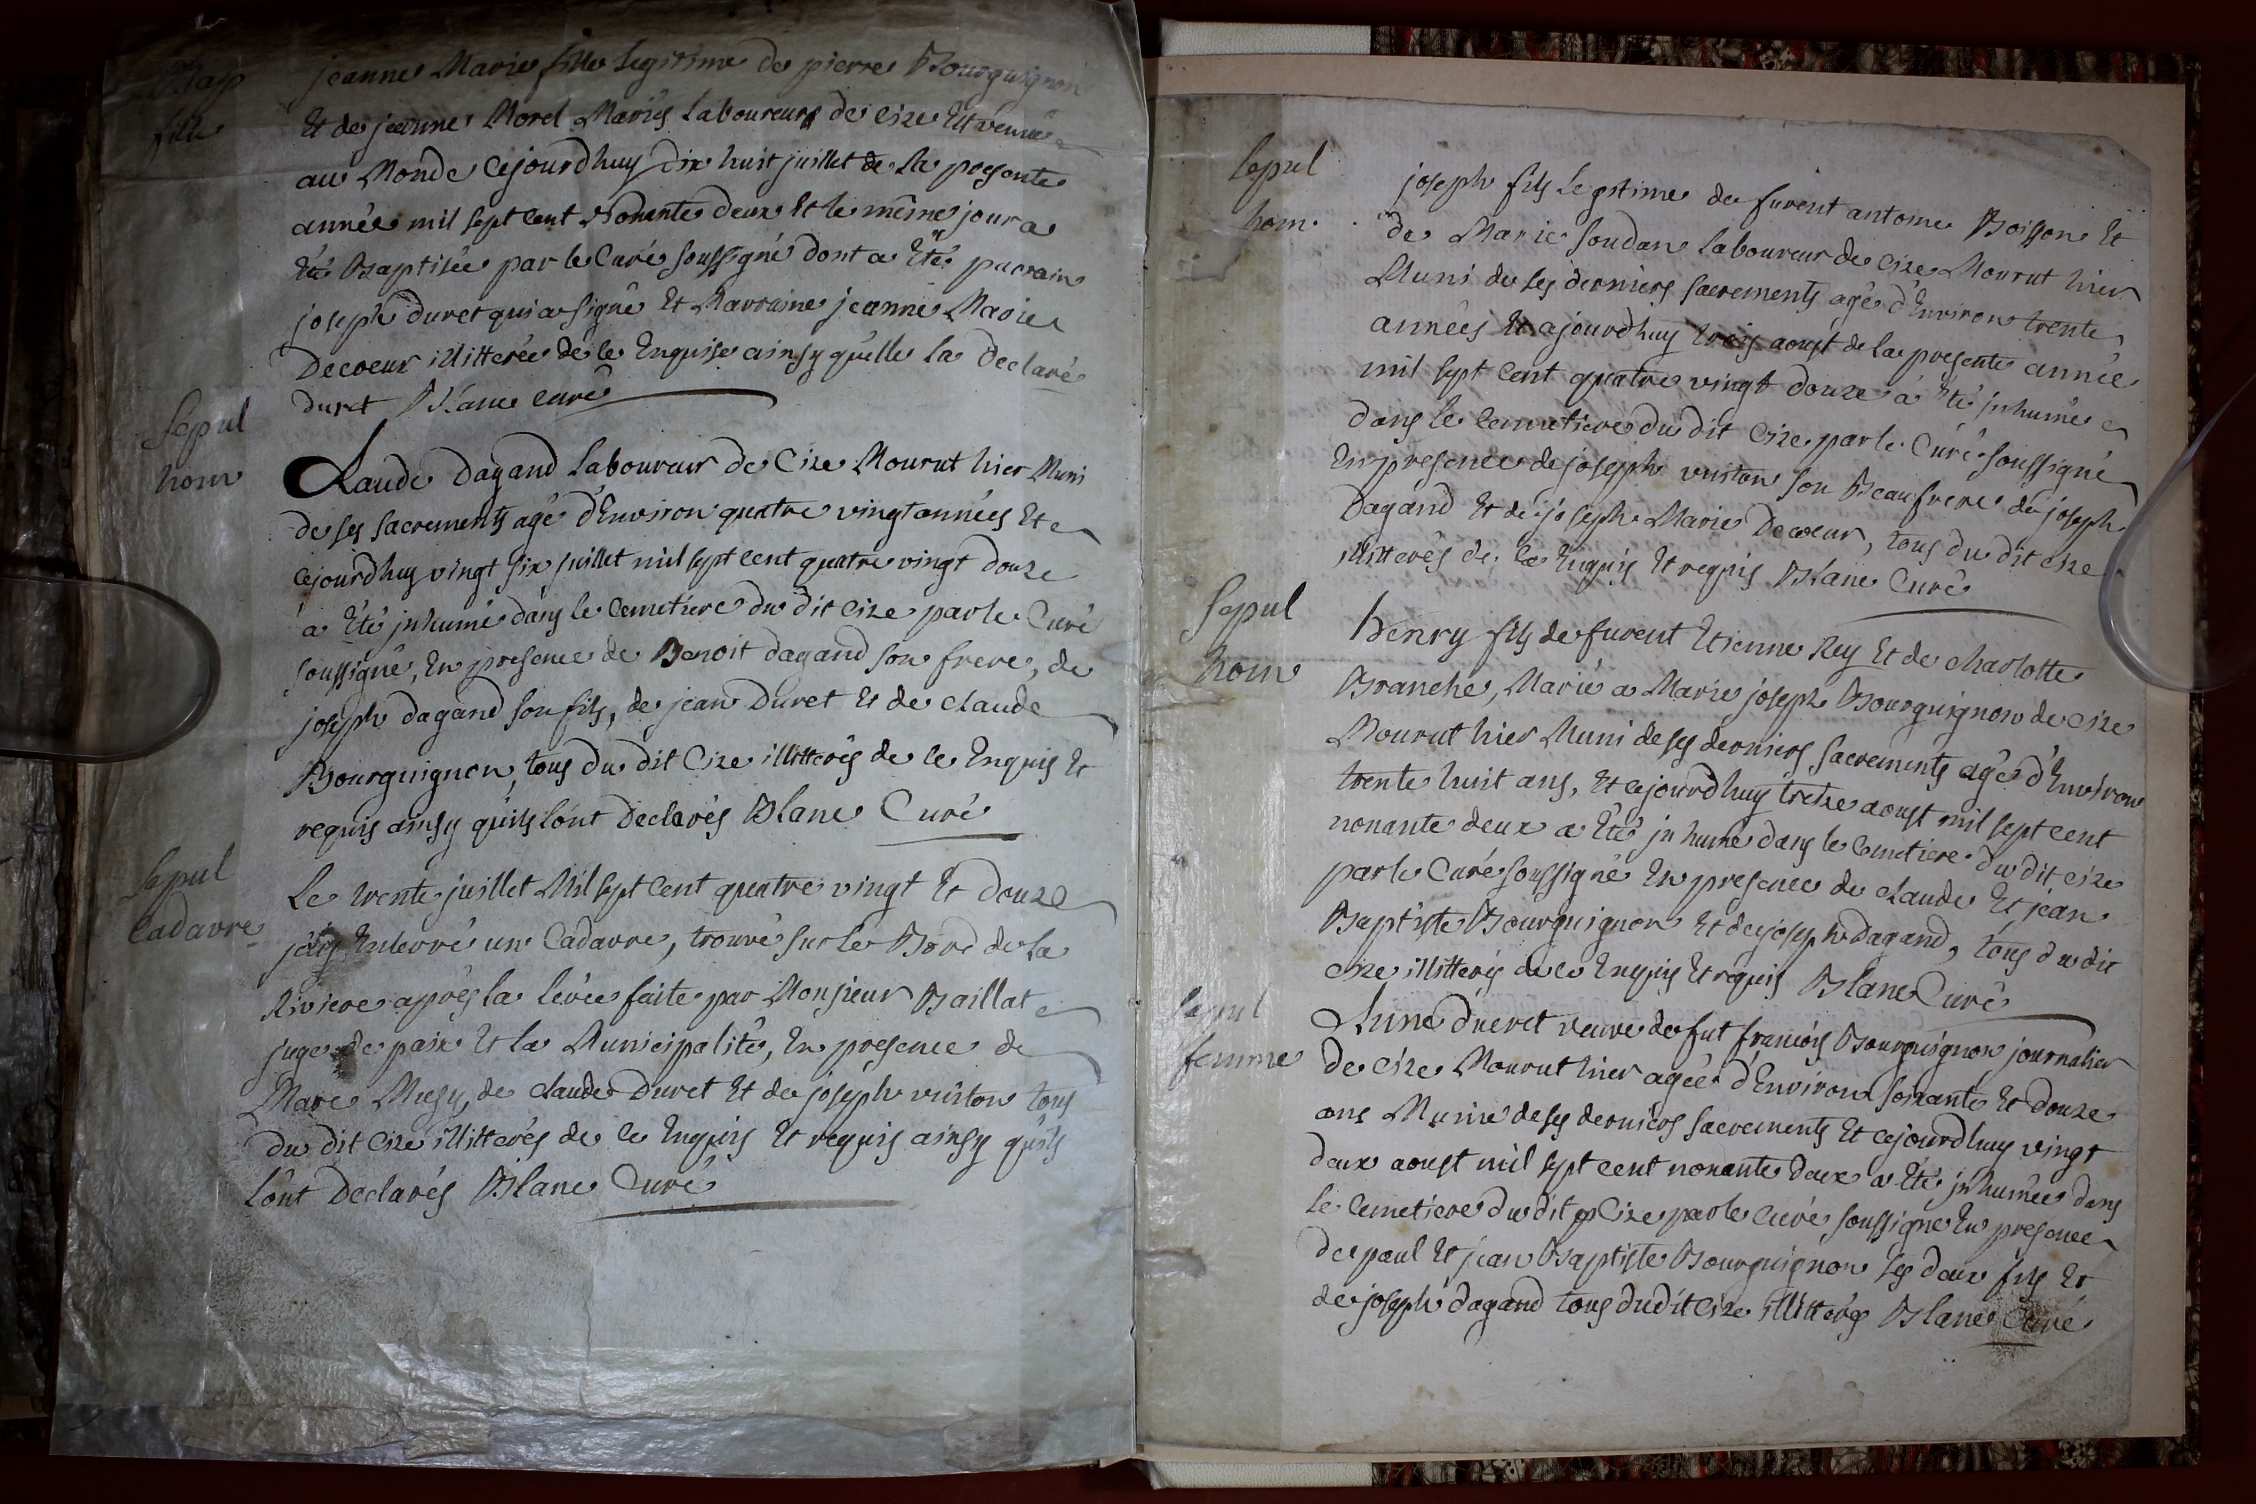 Bap
fille
jeanne Marie fille legitime de pierre Bourguignon
Et de jeanne Morel Mariés Laboureurs de Cize Est venue
au Monde Cejourdhuy dix huit juillet de la presente
année mil sept cent Nonante deux Et le même jour a
Eté Baptisée par le Curé soussigné dont a Eté parrain
joseph duret qui a signé Et Marraine jeanne Marie
Decoeur illitterée de ce Enquise ainsy qu'elle la Declaré
duret Blanc curé
Sepul
hom
Claude Dagand Laboureur de Cize Mourut hier Muni
de ses sacrements agé d'Environ quatre vingt années Et
cejourdhuy vingt six juillet mil sept cent quatre vingt douze
a Eté jnhumé dans le Cemetiere du dit Cize par le Curé
soussigné, En presence de Benoit dagand son frere, de
joseph dagand son fils, de jean Duret Et de Claude
Bourguignon, tous du dit Cize illitterés de ce Enquis Et
requis ainsy qu'ils lont Declarés Blanc Curé
Sepul
Cadavre
Le trente juillet Mil sept Cent quatre vingt Et douze
jay Enterré un Cadavre, trouvé sur le Bord de la
Riviere après la levée faite par Monsieur Baillat
juge de paix Et la Municipalité, En presence de
Marc Musy, de claude Duret Et de joseph vuiton tous
du dit Cize illitterés de ce Enquis Et requis ainsy qu'ils
lônt Declarés Blanc Curé
Sepul
hom
joseph fils Legitime de furent antoine Boisson Et
de Marie Soudan laboureur de Cize Mourut hier
Muni de ses derniers sacrements agé d'Environ trente
années Et cejourdhuy trois aoust de la presente année
mil sept Cent quatre vingt douze à Eté jnhumé
dans le Cemetiere du dit Cize par le Curé soussigné
En presence de joseph vuiton son Beaufrere de joseph
Dagand Et de joseph Marie Decoeur, tous du dit Cize
illitterés de ce Enquis Et requis Blanc Curé
Sepul
hom
henry fils de furent Etienne Rey Et de charlotte
Branche, Marié a Marie joseph Bourguignon de Cize
Mourut hier Muni de ses derniers sacrements agé d'Environ
trente huit ans, Et cejourdhuy treize aoust mil sept cent
nonante deux a Eté jnhumé dans le Cemetiere du dit Cize
par le Curé soussigné En presence de claude Et jean
Baptiste Bourguignon Et de joseph Dagand, tous du dit
Cize illitterés de ce Enquis Et requis Blanc Curé
Sepul
femme
duret veuve de fut francois Bourguignon journalier
de Cize Mourut hier agée d'Environ soixante Et douze
ans Munie de ses derniers sacrements Et cejourdhuy vingt
deux aoust mil sept cent nonante deux a Eté jnhumée dans
le Cemetiere du dit Cize par le curé soussigné En presence
de paul Et jean Baptiste Bourguignon ses deux fils Et
de joseph dagand tous du dit Cize illitterés Blanc Curé